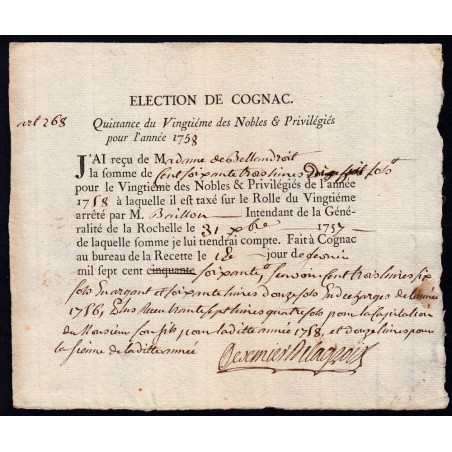 ELECTION DE COGNAC.
art 268
Quittance du Vingtiéme des Nobles & Privilégiés
pour l'année 1758
J'AI reçu de Madame de Bellandroit
la somme de Cent soixante trois livres Douze sols
pour le Vingtiéme des Nobles & Privilégiés de l'année
1758 à laquelle il est taxé sur le Rolle du Vingtiéme
arrêté par M. Baillon Intendant de la Géné-
ralité de la Rochelle le 31 xbre 1757
de laquelle somme je lui tiendrai compte. Fait à Cognac
au bureau de la Recette le 18 jour de
mil sept cent cinquante soixante, Cent trois livres six
sols En argent et soixante livres douze sols En décharges de l'année
1756, Plus Reçu trente sept livres quatre sols pour la Capitation
du Monsieur son fils pour laditte année 1758, et douze livres pour
la sienne de laditte année